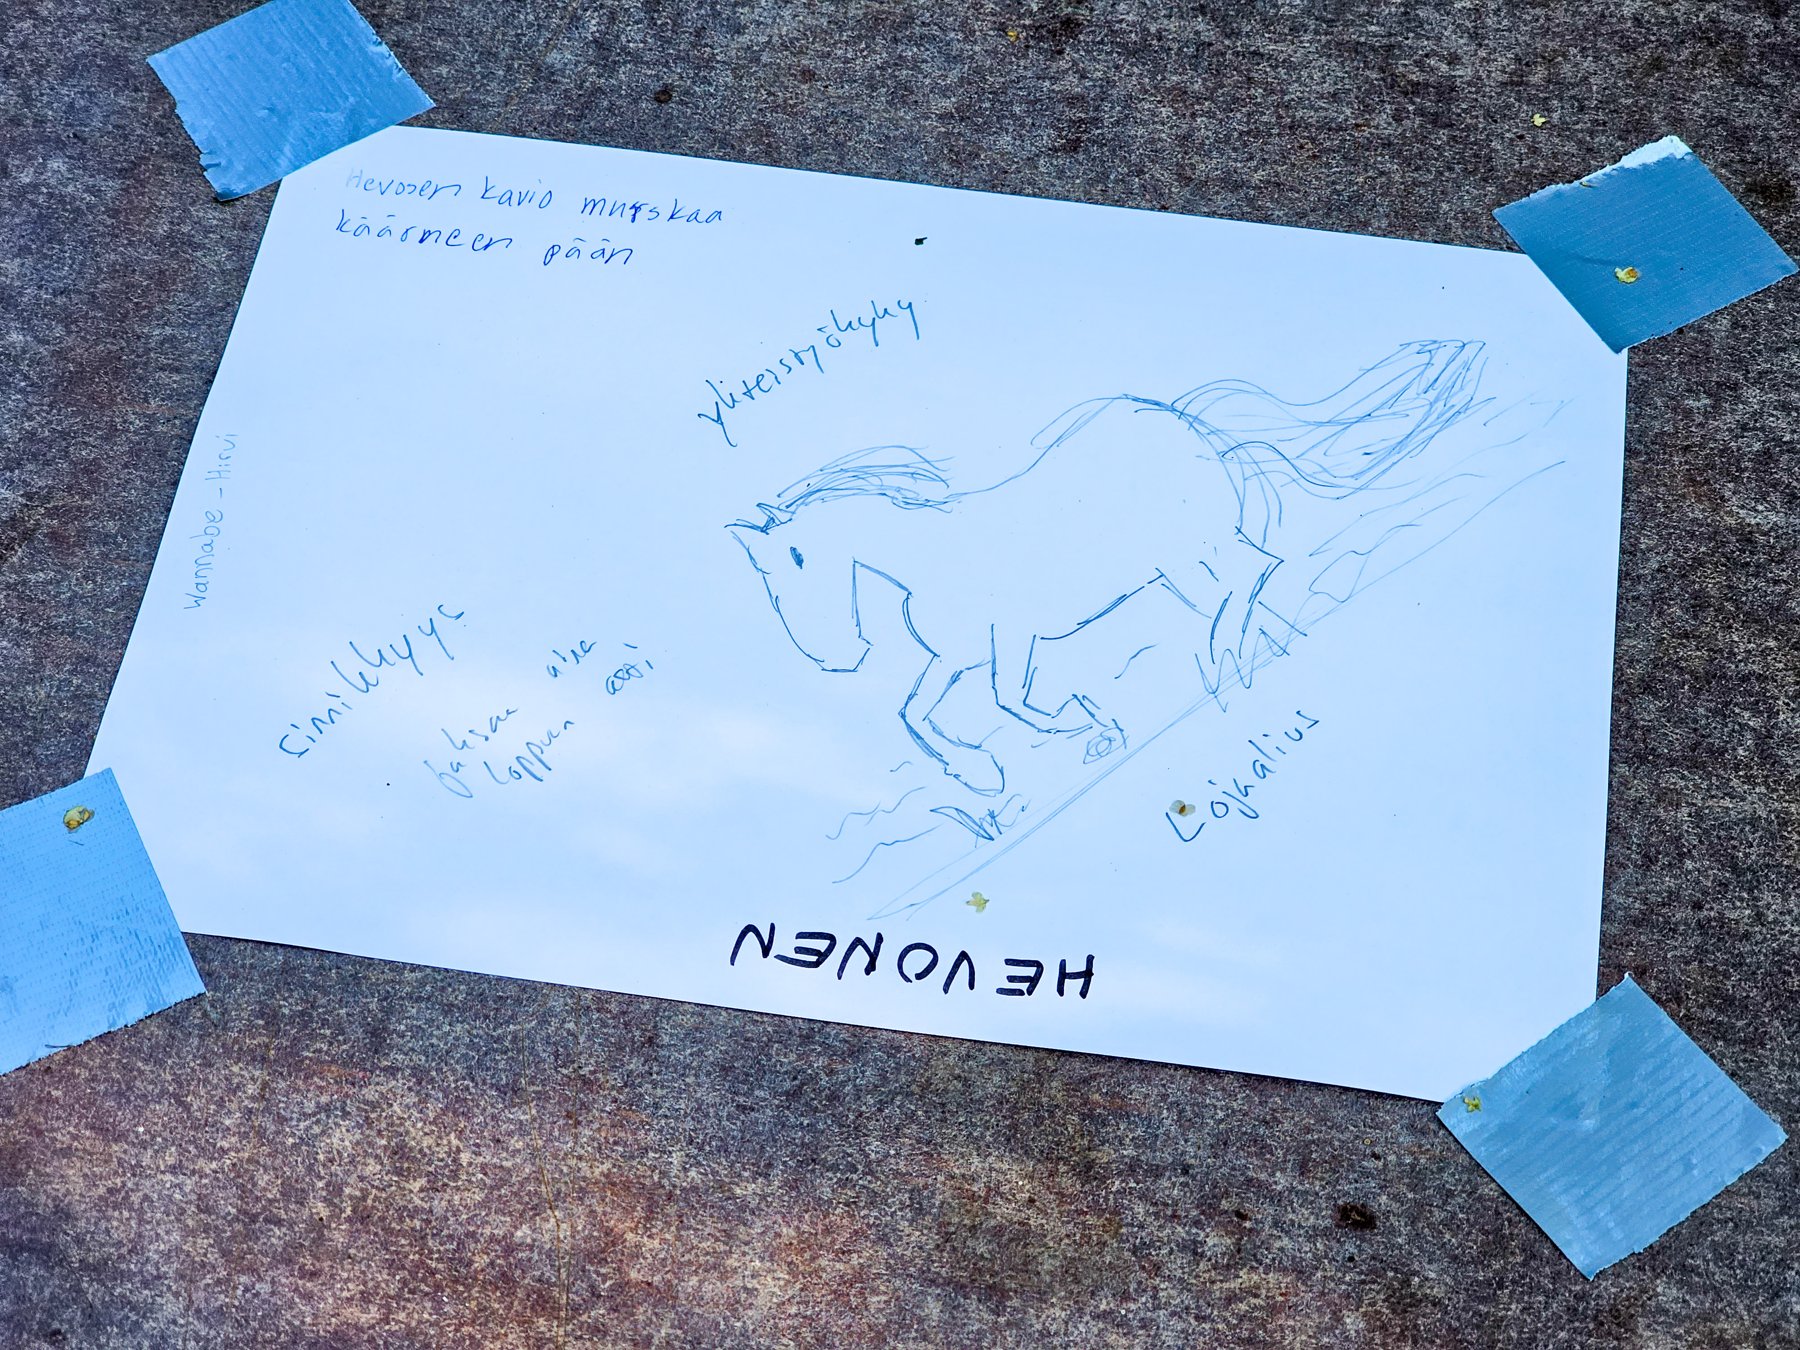 Hevosen kavio murskaa
käärmeen pään
yhteistyökyky
Wannabe-Hirvi
sinnikkyys
jaksaa aina
loppuun asti
Lojaalius
HEVONEN